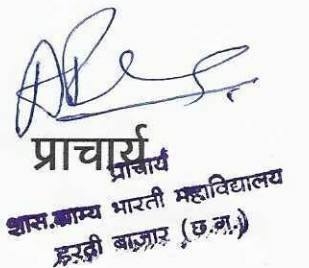 प्राचार्य
प्राचार्य
शास.ग्राम्य भारती महाविद्यालय
हरदी बाज़ार (छ.ग.)